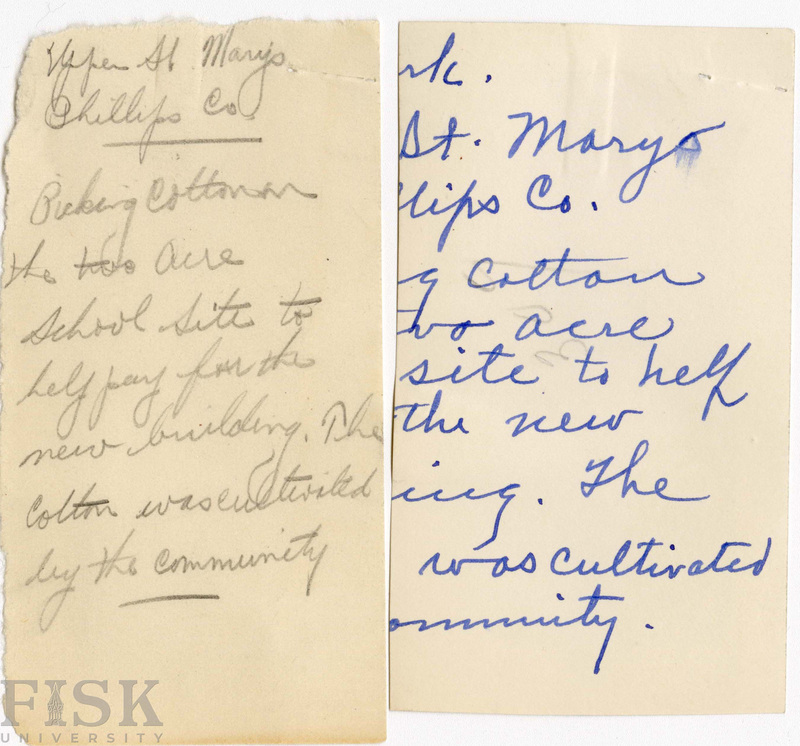 Upper St. Marys
Phillips Co.
Picking Cotton on
the two acre
school site to
help pay for the
new building. The
cotton was cultivated
by the community
rk.
St. Marys
llips Co.
g cotton
two acre
site to help
the new
ing. The
was cultivated
ommunity.
FISK
UNIVERSITY